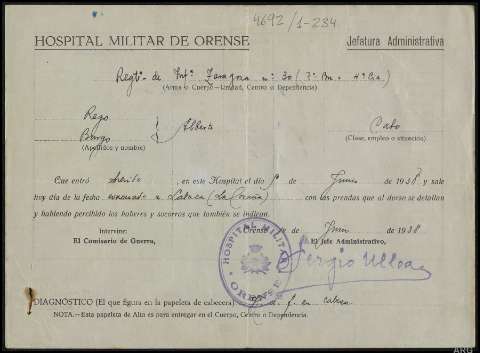 4692/1-234
HOSPITAL MILITAR DE ORENSE Jefatura Administrativa
Regtº de Infª Zaragoza nº 30 (7º Bn. 4ª Cia)
(Arma o Cuerpo—Unidad, Centro o Dependencia)
Rego
Alberto Cabo
(Apellidos y nombre) (Clase, empleo o situación)
Que entró herido, en este Hospital el día de Junio de 1938 y sale
hoy día de la fecha evacuado a (La Coruña) con las prendas que al dorso se detallan
y habiendo percibido los haberes y socorros que también se indican.
Orense de Junio de 1938
Intervine: El Jefe Administrativo,
El Comisario de Guerra,
HOSPITAL MILITAR
ORENSE
Sergio Ulloa
DIAGNÓSTICO (El que figura en la papeleta de cabecera) en cabeza
NOTA.—Esta papeleta de Alta es para entregar en el Cuerpo, Centro o Dependencia.
ARG